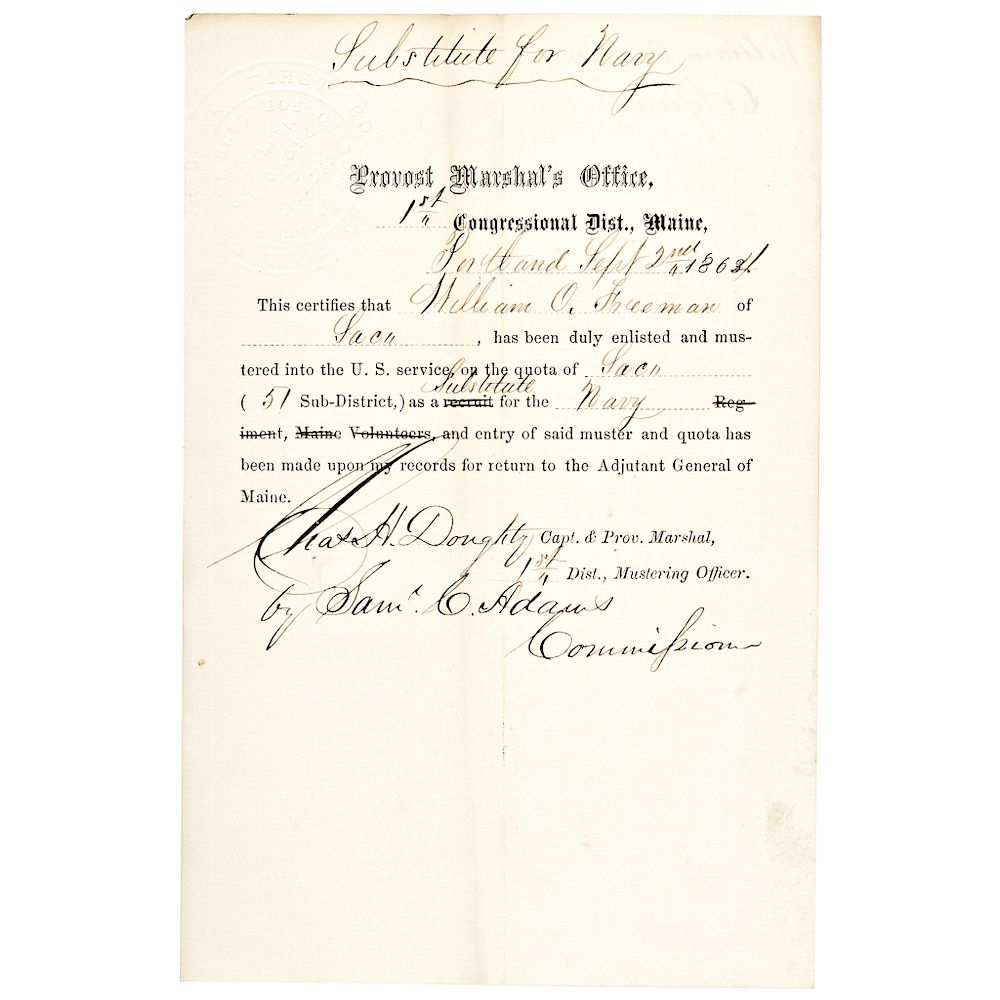 Substitute for Navy
Provost Marshal's Office,
1st Congressional Dist., Maine,
Portland Sept 2nd 1864
This certifies that William O. Freeman of
Saco, has been duly enlisted and mus-
tered into the U. S. service, on the quota of Saco
Substitute
( 51 Sub-District,) as a recruit for the Navy Reg-
iment, Maine Volunteers, and entry of said muster and quota has
been made upon my records for return to the Adjutant General of
Maine.
Chas H. Doughty Capt. & Prov. Marshal,
1st Dist., Mustering Officer.
by Saml. C. Adams
Commissioner